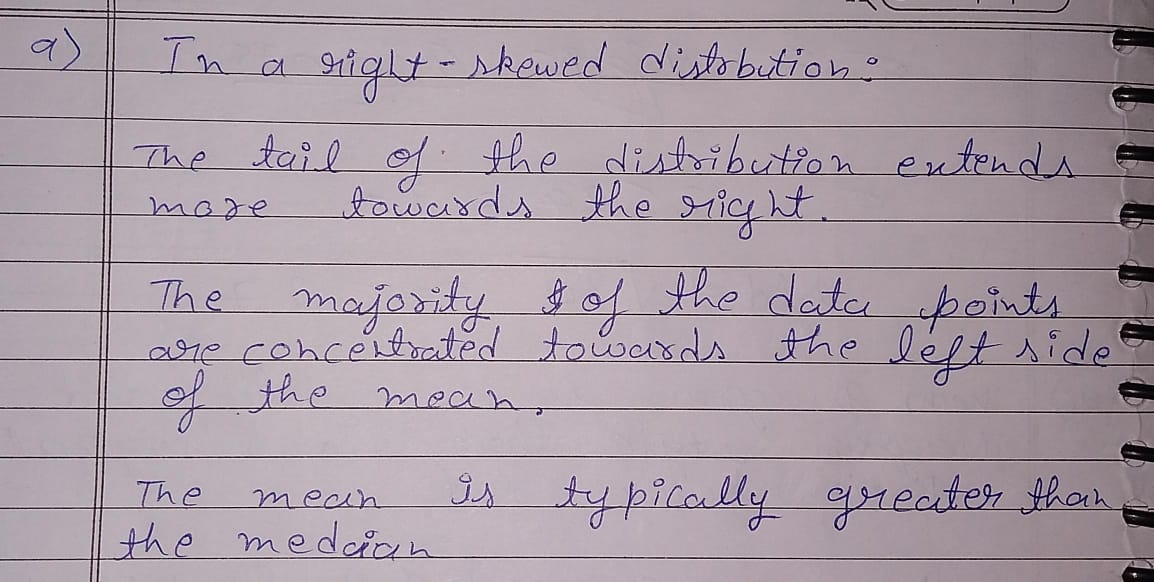 a) In a right-skewed distrbution:
The tail of the distribution extends
more towards the right.
The majority of the data points
are concentrated towards the left side
of the mean.
The mean is typically greater than
the medaian